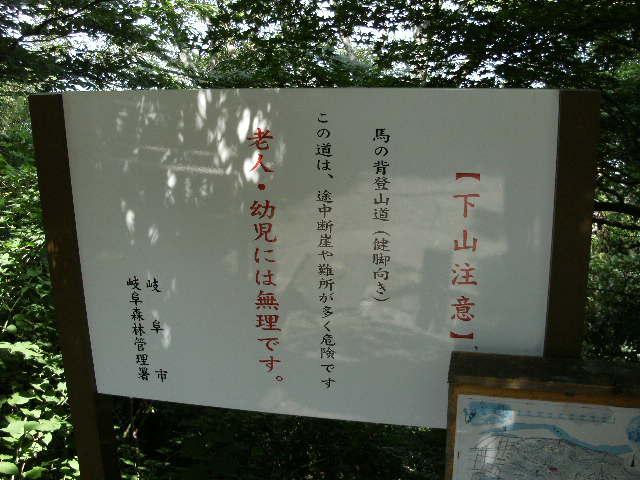 【下山注意】
馬の背登山道（健脚向き）
この道は、途中断崖や難所が多く危険です
老人・幼児には無理です。
岐阜市
岐阜森林管理署